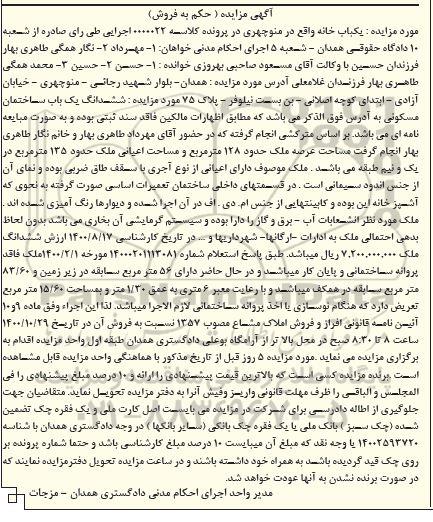 آگهی مزایده ( حکم به فروش)
مورد مزایده : یکباب خانه واقع در منوچهری در پرونده کلاسه ۰۰۰۰۰۲۲ اجرایی طی رای صادره از شعبه
۱۰ دادگاه حقوقی همدان - شعبه ۵ اجرای احکام مدنی خواهان: ۱- مهرداد ۲- نگار همگی طاهری بهار
فرزندان حسین با وکالت آقای مسعود صاحبی بهروزی خوانده : ۱- حسن ۲- حسین ۳- محمد همگی
طاهری بهار فرزندان غلامعلی آدرس مورد مزایده : همدان- بلوار شهید رجائی - منوچهری - خیابان
آزادی - ابتدای کوچه اصلانی - بن بست نیلوفر - پلاک ۷۵ مورد مزایده : ششدانگ یک باب ساختمان
مسکونی به آدرس فوق الذکر می باشد که مطابق اظهارات مالکین فاقد سند ثبتی بوده و به صورت مبایعه
نامه ای می باشد. بر اساس مترکشی انجام گرفته که در حضور آقای مهرداد طاهری بهار و خانم نگار طاهری
بهار انجام گرفت مساحت عرصه ملک حدود ۱۲۸ مترمربع و مساحت اعیانی ملک حدود ۱۳۵ مترمربع در
یک و نیم طبقه می باشد . ملک موصوف دارای اعیانی از نوع آجری با سقف طاق ضربی بوده و نمای آن
از جنس اندود سیمانی است . در قسمتهای داخلی ساختمان تعمیرات اساسی صورت گرفته به نحوی که
آشپز خانه این بوده و کابینتهایی از جنس ام. دی . اف در آن اجرا شده و دیوارها رنگ آمیزی شده اند .
ملک مورد نظر انشعابات آب - برق و گاز را دارا بوده و سیستم گرمایشی آن بخاری می باشد بدون لحاظ
بدهی احتمالی ملک به ادارات -ارگانها- شهرداریها و ... در تاریخ کارشناسی ۱۴۰۰/۸/۱۷ ارزش ششدانگ
ملک ۷.۲۰۰.۰۰۰.۰۰۰ ریال میباشد. طبق پاسخ استعلام شماره ۱۴۰۰۰۲۰۱۱۱۳۰۸۱ مورخه ۱۴۰۰/۲/۱ملک فاقد
پروانه ساختمانی و پایان کار میباشد و در حال حاضر دارای ۵۶ متر مربع سابقه در زیر زمین و ۸۳/۶۰
متر مربع سابقه در همکف میباشد و با رعایت معبر ۶متری به عمق ۱/۳۰ متر و بمساحت ۱۵/۶۰ متر مربع
تعریض دارد که هنگام نوسازی یا اخذ پروانه ساختمانی لازم الاجرا میباشد. لذا این اجراء وفق ماده ۹و۱۰
آئین نامه قانونی افراز و فروش املاک مشاع مصوب ۱۳۵۷ نسبت به فروش آن در تاریخ ۱۴۰۰/۱۰/۲۹
ساعت ۸ تا ۸:۳۰ صبح در محل بالا تر از آرامگاه بوعلی دادگستری همدان طبقه اول واحد مزایده اقدام به
برگزاری مزایده می نماید .مورد مزایده ۵ روز قبل از تاریخ مذکور با هماهنگی واحد مزایده قابل مشاهده
است .برنده مزایده کسی است که بالاترین قیمت پیشنهادی را ارائه و ۱۰ درصد مبلغ پیشنهادی را فی
المجلس و الباقی را ظرف مهلت قانونی واریز وفیش آنرا به دفتر مزایده تحویل نماید. متقاضیان جهت
جلوگیری از اطاله دادرسی برای شرکت در مزایده می بایست اصل کارت ملی و یک فقره چک تضمین
شده (چک سبز ) بانک ملی یا یک فقره چک بانکی (سایر بانکها ) در وجه دادگستری همدان با شناسه
۱۴۰۰۲۵۹۳۷۲۰ یا وجه نقد که مبلغ آن میبایست ۱۰ درصد مبلغ کارشناسی باشد و حتما شماره پرونده بر
روی چک قید گردیده باشد به همراه خود داشته باشند و در ساعت مزایده تحویل دفترمزایده نمایند که
در صورت برنده نشدن به آنها عودت خواهد شد.
مدیر واحد اجرای احکام مدنی دادگستری همدان - مزجات